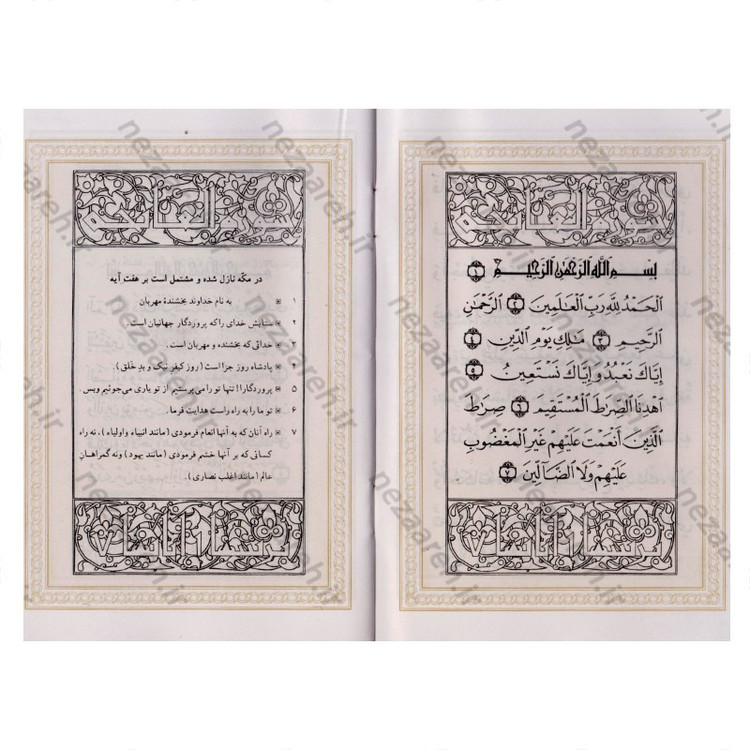 بِسْمِ ٱللَّهِ ٱلرَّحْمَٰنِ ٱلرَّحِيمِ ۝١
ٱلْحَمْدُ لِلَّهِ رَبِّ ٱلْعَٰلَمِينَ ۝٢ ٱلرَّحْمَٰنِ
ٱلرَّحِيمِ ۝٣ مَٰلِكِ يَوْمِ ٱلدِّينِ ۝٤
إِيَّاكَ نَعْبُدُ وَإِيَّاكَ نَسْتَعِينُ ۝٥
ٱهْدِنَا ٱلصِّرَٰطَ ٱلْمُسْتَقِيمَ ۝٦ صِرَٰطَ
ٱلَّذِينَ أَنْعَمْتَ عَلَيْهِمْ غَيْرِ ٱلْمَغْضُوبِ
عَلَيْهِمْ وَلَا ٱلضَّآلِّينَ ۝٧
در مکّه نازل شده و مشتمل است بر هفت آیه
۱ به نام خداوند بخشندهٔ مهربان
۲ ستایش خدای را که پروردگار جهانیان است.
۳ خدائی که بخشنده و مهربان است.
۴ پادشاه روز جزا است (روز کیفر نیک و بدِ خلق)
۵ پروردگارا! تنها تو را می‌پرستیم از تو یاری می‌جوئیم وبس.
۶ تو ما را به راه راست هدایت فرما.
۷ راه آنان که به آنها انعام فرمودی (مانند انبیاء و اولیاء)، نه راه
کسانی که بر آنها خشم فرمودی (مانند یهود) ونه گمراهانِ
عالم (مانند اغلب نصاری).
nezaareh.ir